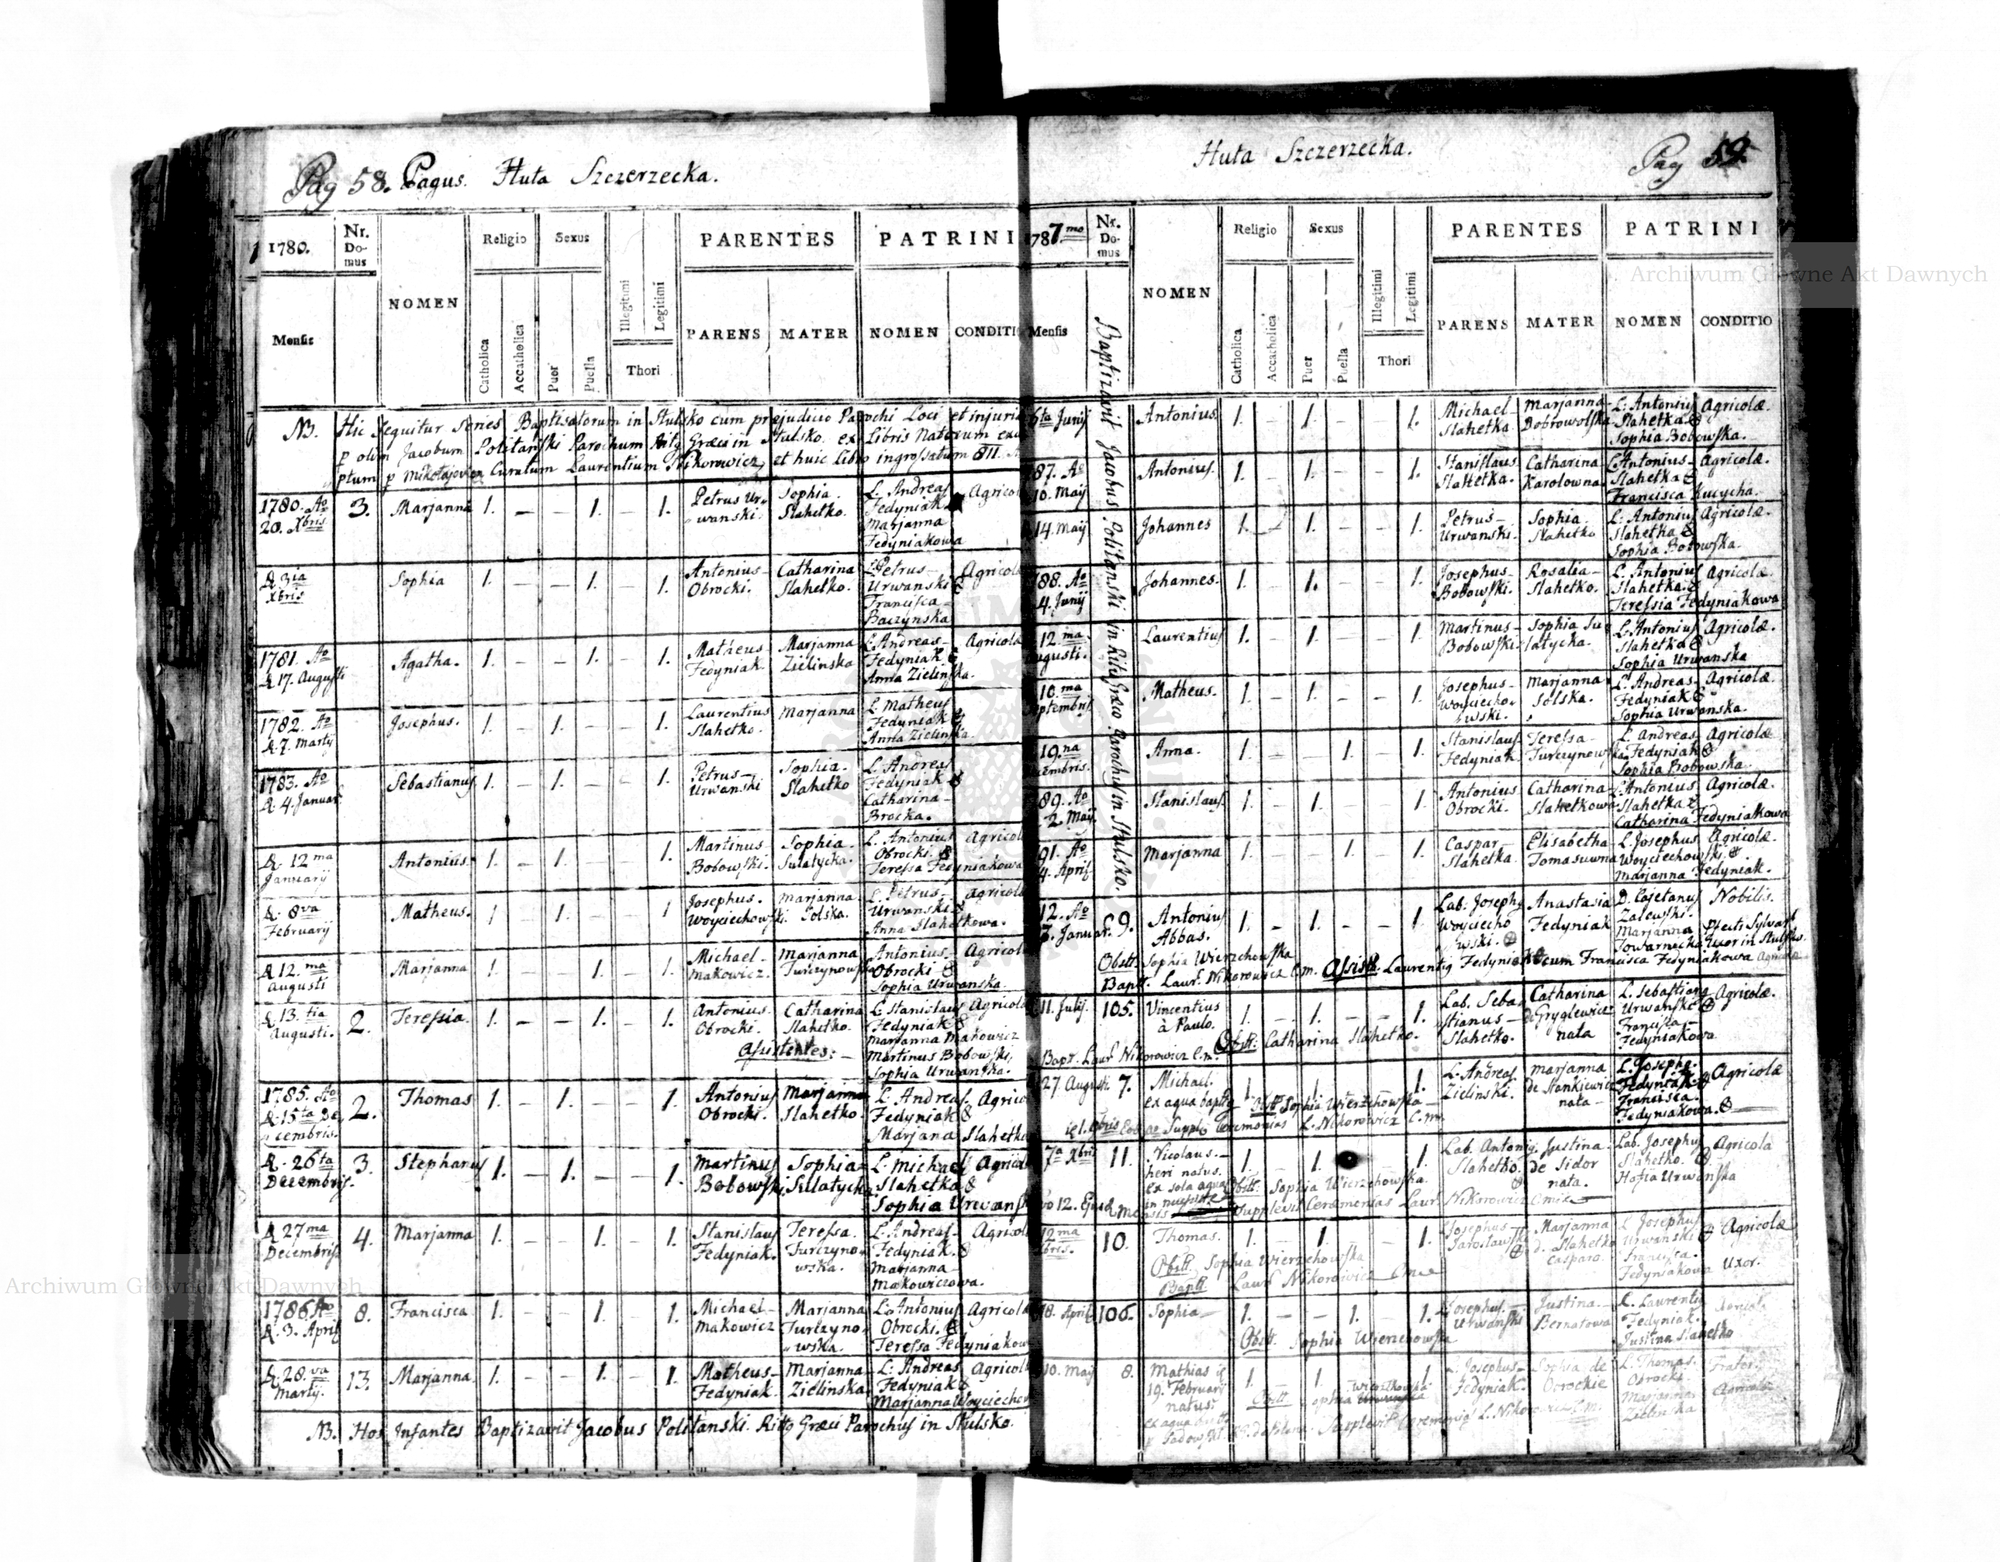 Pag 58. Pagus. Huta Szczerzecka.
1780.
Nr. Domus
NOMEN
Religio
Sexus
PARENTES
PATRINI
Mensis
Catholica
Accatholica
Puer
Puella
Illegitimi
Legitimi
Thori
PARENS
MATER
NOMEN
CONDITIO
NB. Hic sequitur series Baptisatorum in Stulsko cum prejudicio Parochi Loci et injuria
p olim Jacobum Politanski Parochum Ritg Græci in Stulsko. ex Libris Natorum
ptum p Mikołajow Curatum Laurentium Nikorowicz, et huic libro ingrossatum 811.
1780. Ao 20. Xbris 3. Marjanna 1. – – 1. – 1. Petrus Urwanski. Sophia Slahetko. L. Andreas Fedyniak Marjanna Fedyniakowa Agricolæ
d. 3ia Xbris Sophia 1. – – 1. – 1. Antonius Obrocki. Catharina Slahetko. Petrus Urwanski & Francisca Baczynska Agricolæ
1781. Ao d. 17. Augusti Agatha. 1. – – 1. – 1. Matheus Fedyniak. Marjanna Zielinska L. Andreas Fedyniak & Anna Zielinska. Agricolæ
1782. Ao d. 7. Martij Josephus. 1. – 1. – – 1. Laurentius Slahetko. Marjanna L. Matheus Fedyniak & Anna Zielinska
1783. Ao d. 4. Januar. Sebastianus 1. – 1. – – 1. Petrus Urwanski Sophia. Slahetko L. Andreas Fedyniak & Catharina Brocka.
d. 12ma Januarij Antonius. 1. – 1. – – 1. Martinus Bobowski. Sophia Sulatycka. L. Antonius Obrocki. & Teressa Fedyniakowa Agricolæ
d. 8va Februarij Matheus. 1 – 1. – – 1 Josephus. Woyciechowski. Marjanna Solska. L. Petrus Urwanski & Anna Slahetkowa. Agricolæ
d. 12. ma Augusti Marjanna 1. – – 1. – 1. Michael Makowicz. Marjanna Turczynowska Antonius Obrocki & Sophia Urwanska Agricolæ
d. 13. tia Augusti. 2. Teressia. 1. – – 1. – 1. Antonius. Obrocki. Catharina Slahetko. L. Stanislaus Fedyniak & Marjanna Makowicz Agricolæ
Asistentes: Martinus Bobowski, Sophia Urwanska.
1785. Ao d. 15ta Decembris. 2. Thomas 1. – 1. – – 1. Antonius Obrocki. Marjanna Slahetko. L. Andreas Fedyniak & Marjana Slahetko Agricolæ
d. 26ta Decembris. 3. Stephanus 1. – 1. – – 1. Martinus Bobowski. Sophia Sulatycka L. Michael Slahetka & Sophia Urwanska Agricolæ
d. 27ma Decembris 4. Marjanna 1. – – 1. – 1. Stanislaus Fedyniak. Teressa. Turczynowska. L. Andreas Fedyniak. & Marjanna Makowiczowa. Agricolæ
1786. Ao d. 3. April 8. Francisca 1. – – 1. – 1. Michael Makowicz Marjanna Turczynowska. L. Antonius Obrocki. & Teressa Fedyniakowa Agricolæ
d. 28. va Martij. 13. Marjanna 1. – – 1. – 1. Matheus Fedyniak. Marjanna Zielinska L. Andreas Fedyniak & Marjanna Woyciechow Agricolæ
NB. Hos Infantes Baptizavit Jacobus Politanski. Rittg Græci Parochus in Stulsko.
Huta Szczerzecka.
Pag 59.
1787.mo
Nr. Domus
NOMEN
Religio
Sexus
PARENTES
PATRINI
Mensis
Catholica
Accatholica
Puer
Puella
Illegitimi
Legitimi
Thori
PARENS
MATER
NOMEN
CONDITIO
Baptizavit Jacobus Politanski Ritg Græco Parochus in Stulsko.
6ta Junij Antonius. 1. – 1. – – 1. Michael Slahetka Marjanna Bobrowolska L. Antonius Slahetka & Sophia Bobowska. Agricolæ.
87. Ao 10. Maij Antonius. 1. – 1. – – 1. Stanislaus Slahetka. Catharina Karolowna L. Antonius Slahetka & Francisca Kucycha. Agricolæ.
14. Maij Johannes 1. – 1. – – 1. Petrus Urwanski. Sophia Slahetko L. Antonius Slahetka & Sophia Bobowska. Agricolæ.
788. Ao 4. Junij Johannes. 1. – 1. – – 1. Josephus Bobowski. Rosalia Slahetko. L. Antonius Slahetka. & Teressia Fedyniakowa Agricolæ.
12. ma Augusti. Laurentius 1. – 1. – – 1. Martinus Bobowski. Sophia Sulatycka. L. Antonius Slahetka & Sophia Urwanska Agricolæ.
10. ma Septembris Matheus. 1. – 1. – – 1. Josephus Woyciechowski. Marjanna Solska. L. Andreas Fedyniak & Sophia Urwanska. Agricolæ.
19. na Anna. 1. – – 1. – 1. Stanislaus Fedyniak Teressa Turczynowska L. Andreas Fedyniak & Sophia Bobowska. Agricolæ
89. Ao 2. Maij. Stanislaus 1. – 1. – – 1. Antonius Obrocki. Catharina Slahetkowa L. Antonius Slahetka & Catharina Fedyniakowa Agricolæ.
91. Ao 4. April Marjanna 1. – – 1. – 1. Caspar Slahetka. Elisabetha Tomasuwna L. Josephus Woyciechowski. & Marjanna Fedyniak. Agricolæ
12. Ao Januar. 9. Antonius Abbas. 1. – 1. – – 1. Lab: Josephg Woyciechowski. Anastasia Fedyniak D. Cajetanus Zalewski. Marjanna Towarnicka Nobilis. Uxor in Stulsko.
Obstt. Sophia Wierzchowska
Bapt. Laur. Nikorowicz C.m. Assistt. Laurentig Fedyniak cum Francisca Fedyniakowa Agricolæ
11. Julij. 105. Vincentius à Paulo. 1. – 1. – – 1. Lab. Sebastianus Slahetko. Catharina de Gryglewicz nata L. Sebastianus Urwanski & Francisca Fedyniakowa Agricolæ.
Bapt. Laur. Nikorowicz C.m. Obstt: Catharina Slahetko.
27 Augusti 7. Michael. ex aqua baptg 1. – 1. – – 1. L. Andreas Zielinski. Marjanna de Stankiewicz nata L. Josephg. Fedyniak & Francisca. Fedyniakowa. Agricolæ
Obstt. Sophia Wierzchowska
Ceremonias L. Nikorowicz C.m.
7a Xbris 11. Nicolaus heri natus. ex sola aqua 1. – 1. – – 1. Lab. Antonig Slahetko. Justina de Sidor nata. Lab. Josephus Slahetko. & Hofia Urwanska Agricola
Obstt. Sophia Wierzchowska.
Supplevit Ceremonias Laur. Nikorowicz
19ma Xbris. 10. Thomas. 1. – 1. – – 1. Josephus Jaroslawski Marjanna d. Slahetko Casparo. L. Josephus Urwanski & Francisca. Fedyniakowa Uxor. Agricolæ
Obstt. Sophia Wierzchowska
Baptt. Laur. Nikorowicz Cm
18. April 106. Sophia 1. – – 1. – 1. Josephus Urwanski Justina Bernatowa L. Laurentig Fedyniak. Justina Slahetko
Obstt. Sophia Wierzchowska
10. Maij 8. Mathias 19. Februarij natus. 1. – 1. – – 1 L. Josephus Fedyniak. Sophia de Obrockie L. Thomas. Obrocki. Marjanna Zielinska Agricolæ
Obstt. Sophia Wierzchowska
Supplevit Ceremonias L. Nikorowicz C.m.
Archiwum Główne Akt Dawnych
Archiwum Główne Akt Dawnych